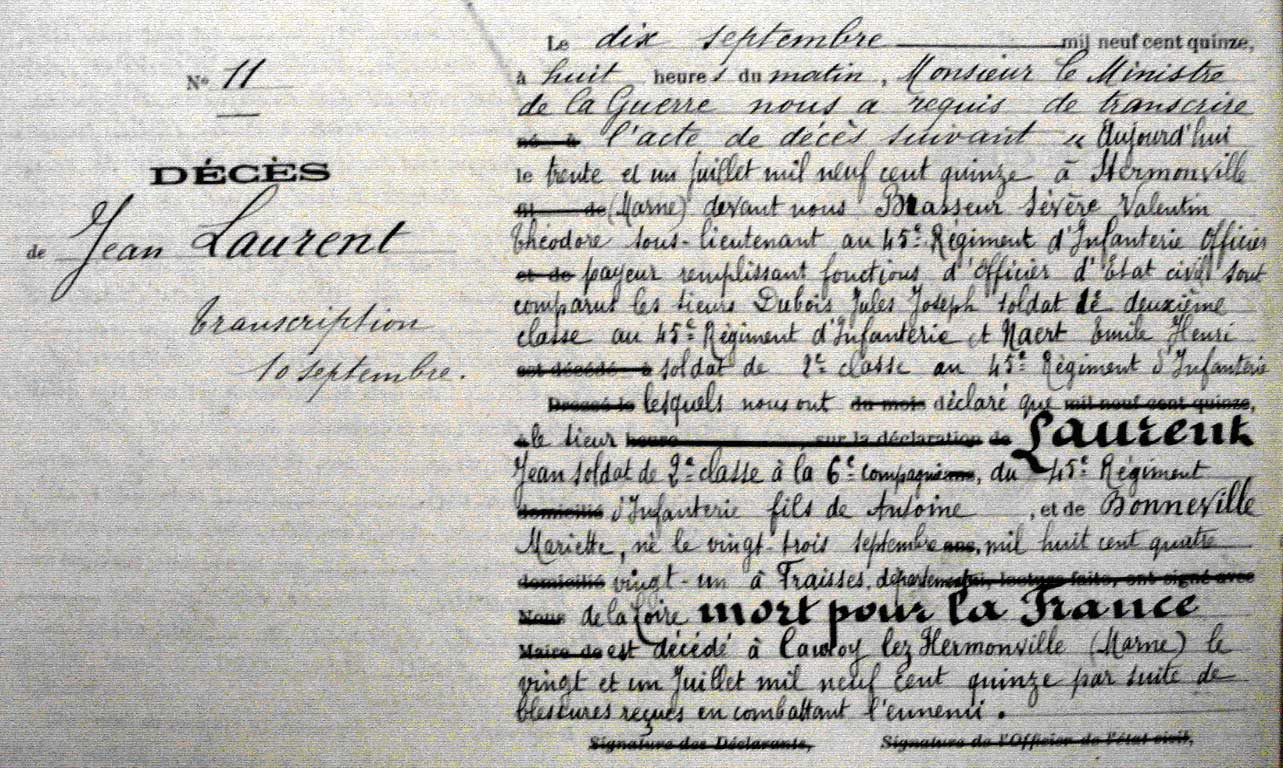 Le dix septembre mil neuf cent quinze,
N° 11
à huit heures du matin, Monsieur le Ministre
de la Guerre nous a requis de transcrire
né à l'acte de décès suivant « Aujourd'hui
DÉCÈS
le trente et un juillet mil neuf cent quinze à Hermonville
fil de (Marne) devant nous Brasseur Sévère Valentin
de Jean Laurent
Théodore sous-lieutenant au 45e Régiment d'Infanterie Officier
et de payeur remplissant fonctions d'Officier d'Etat civil sont
comparus les sieurs Dubois Jules Joseph soldat de deuxième
Transcription
classe au 45e Régiment d'Infanterie et Naert Emile Henri
10 septembre.
est décédé à soldat de 2e classe au 45e Régiment d'Infanterie
Dressé le lesquels nous ont du mois déclaré que mil neuf cent quinze,
à le sieur heure sur la déclaration de Laurent
Jean soldat de 2e classe à la 6e compagnie ans, du 45e Régiment
domicilié d'Infanterie fils de Antoine , et de Bonneville
Mariette, né le vingt-trois septembre ans, mil huit cent quatre
domicilié vingt-un à Fraisses, département lecture faite, ont signé avec
Nous de la Loire mort pour la France
Maire de est décédé à Cauroy lez Hermonville (Marne) le
vingt et un Juillet mil neuf cent quinze par suite de
blessures reçues en combattant l'ennemi.
Signature des Déclarants, Signature de l'Officier de l'état civil,